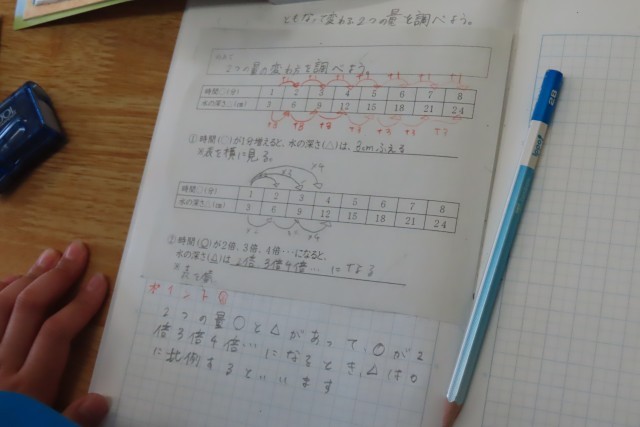 ともなって変わる2つの量を調べよう。
2つの量の変わり方を調べよう。
+1 +1 +1 +1 +1 +1 +1
時間○(分) 1 2 3 4 5 6 7 8
水の深さ△(cm) 3 6 9 12 15 18 21 24
+3 +3 +3 +3 +3 +3 +3
①時間(○)が1分増えると、水の深さ(△)は、3cmふえる
※表を横に見る。
×4
×3
時間○(分) 1 2 3 4 5 6 7 8
水の深さ△(cm) 3 6 9 12 15 18 21 24
×2 ×4
②時間(○)が2倍、3倍、4倍…になると、
水の深さ(△)は 2倍 3倍 4倍… になる
※表を横
ポイント
2つの量○と△があって、○が2
倍3倍4倍…になるとき、△は○
に比例するといいます
2B